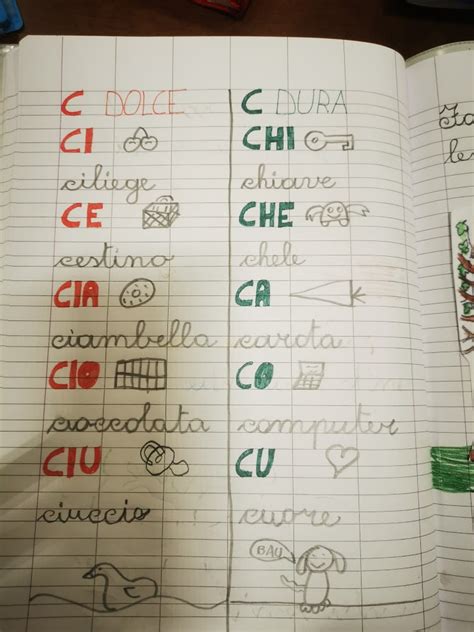 C DOLCE
CI
ciliege
CE
cestino
CIA
ciambella
CIO
cioccolata
CIU
ciuccio
C DURA
CHI
chiave
CHE
chele
CA
carota
CO
computer
CU
cuore
BAU